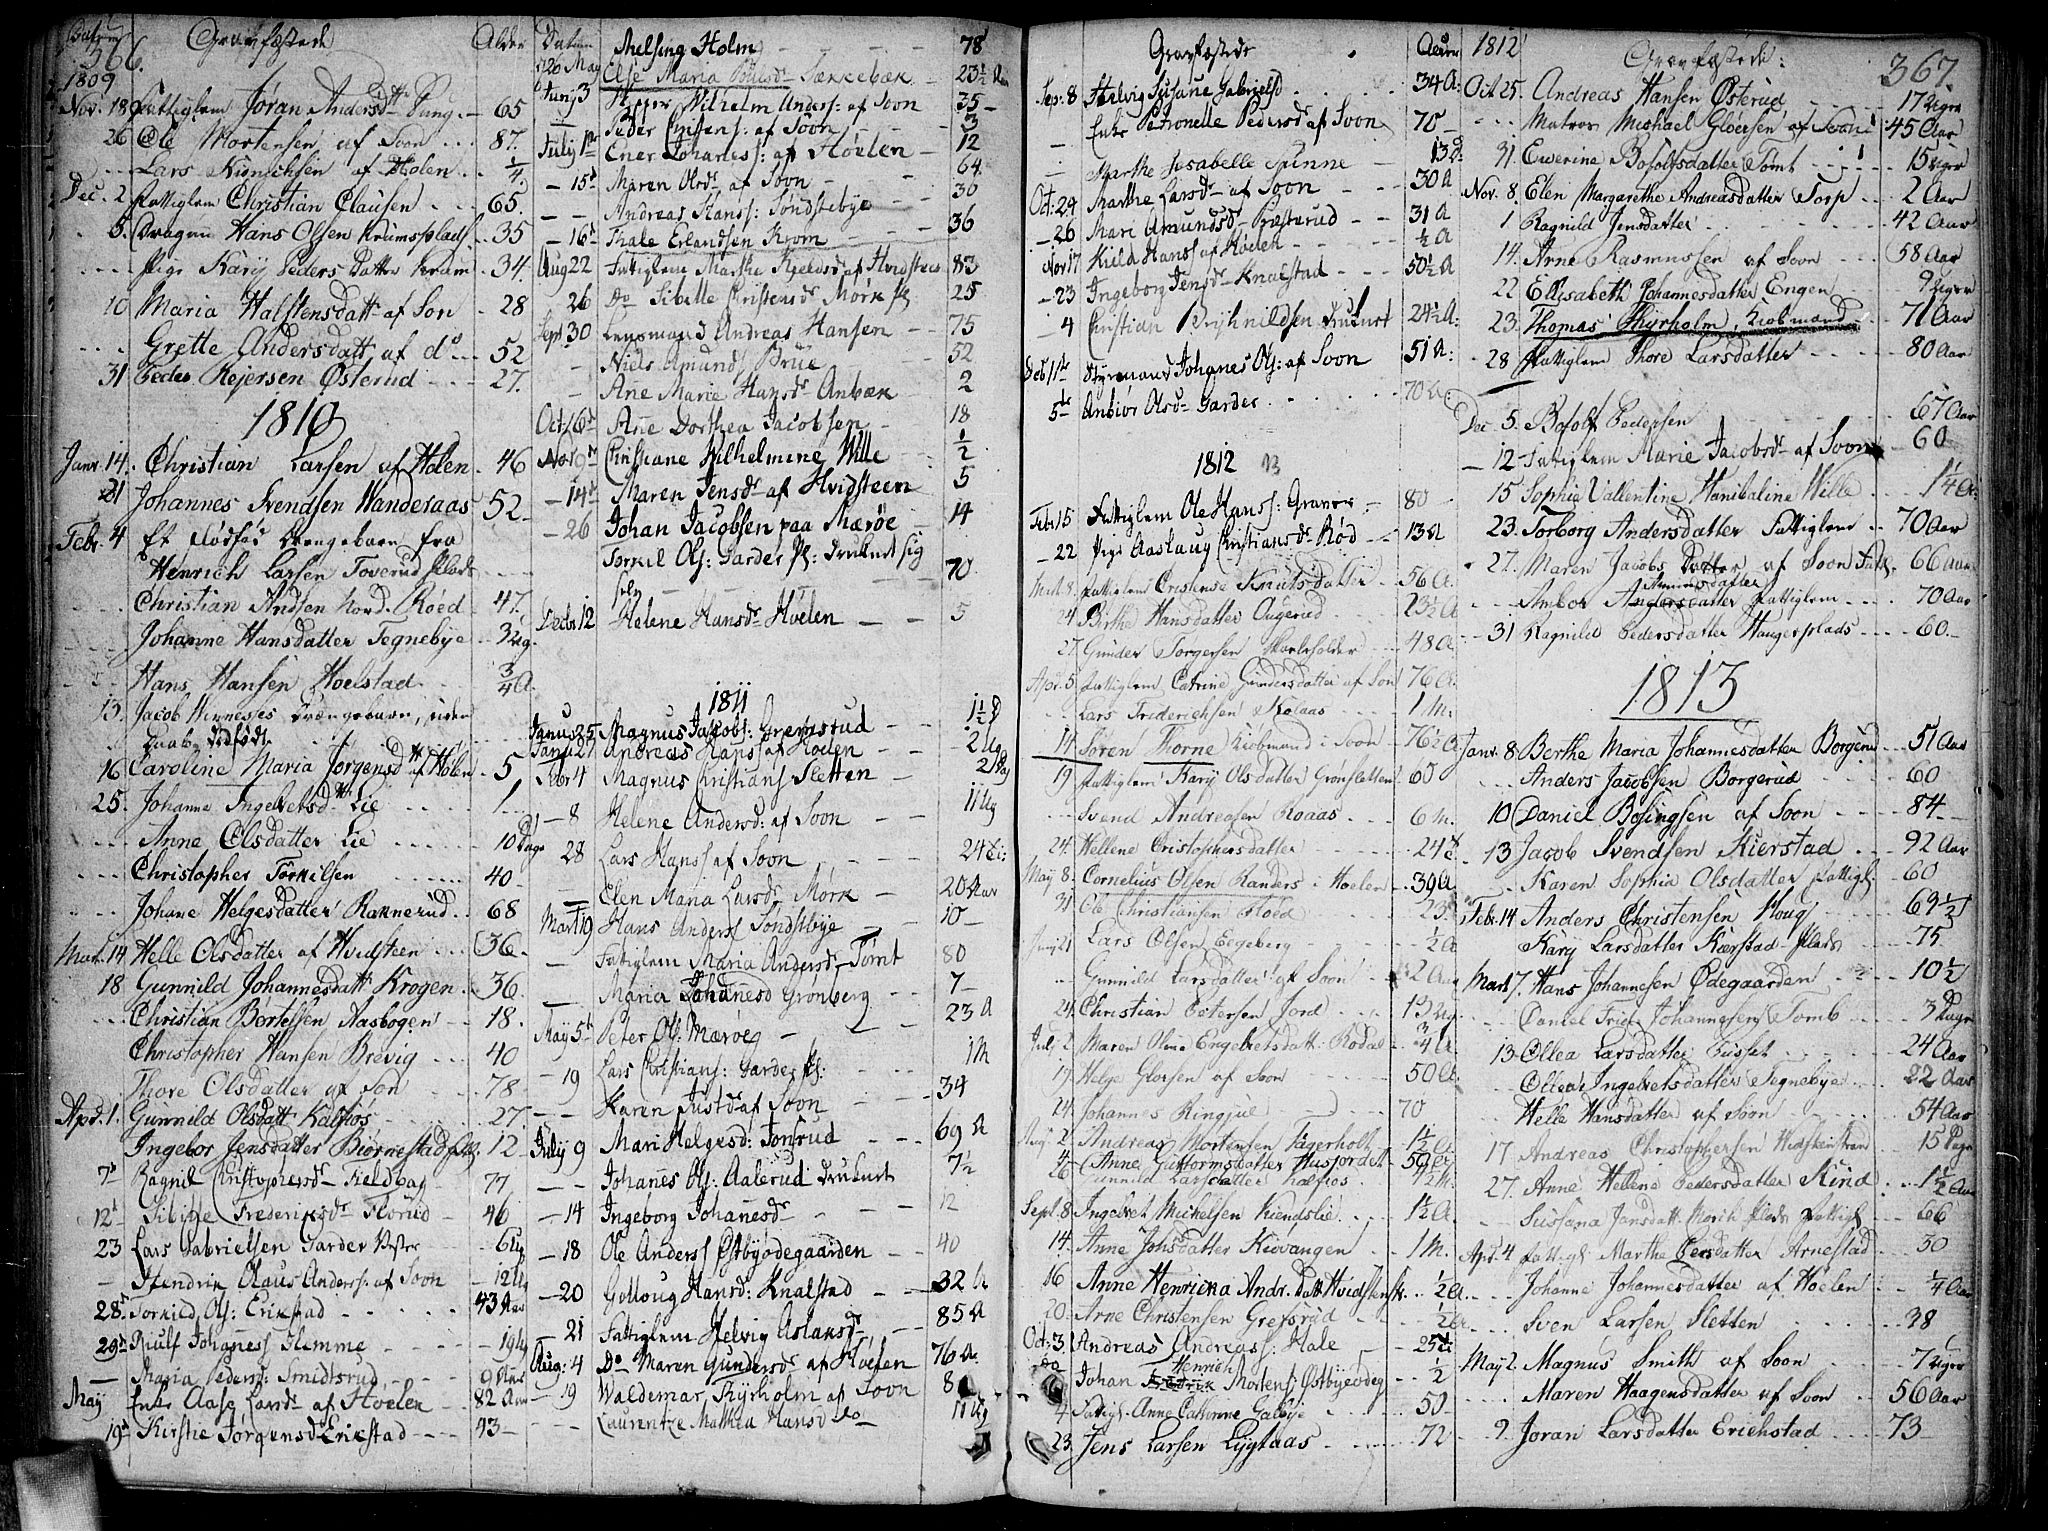 Datum
366.
Gravfæstede
Alder
1809
Nov. 18 Fattiglem Jøran Andersdttr Pung 65
26 Ole Mortensen af Soon 87.
Lars Hinrichsen af Holen 1/4
Dec. 2 Fattiglem Christian Clausen 65.
5. Dragun Hans Olsen Krumsplads 35
Pige Karij Peders Datter Kram 34.
10 Maria Halstensdattr af Son 28
Grette Andersdatt af do 52
31 Peder Rejersen Østerud 27.
1810
Janr. 14. Christian Larsen af Holen 46
21 Johannes Svendsen Wanderaas 52
Febr. 4 Et dødføt Drengebarn fra
Henrich Larsen Toverud Plads
Christian Andsen nord. Røed 47.
Johanne Hansdatter Tegnebye 3 Ug.
Hans Hansen Hoelstad 3/4 A.
13. Jacob Drengebarn, uden
Daab dødfødt
16 Caroline Maria Jørgensdttr af Holen 5
25. Johanne Ingebretsdttr Lie 1
Anne Olsdatter Lie 10 Dage
Christopher Torkilsen 40
Johane Helgesdatter Rannerud 68
Mart. 14 Helle Olsdatter af Hvidsteen 36.
18 Gunnild Johannesdatt Krogen 36.
Christian Bertelsen Aasbogen 18.
Christopher Hansen Brevig 40
Thore Olsdatter af Son 78
Apr. 1. Gunnild Olsdatt Kalfos 27.
Ingebor Jensdatter Biørnestad Plds. 12
7d Ragnil Christophersdr Fieldbag 77
12t Sibille Frederiksdr Florud 46
23 Lars Gabrielsen Garder Vester 6 Ug
Hendrik Olaus Anders: af Soon 12 Ug
28t Torkild Ols: Erikstad 43 Aar
29d Riulf Johaness Hemme 19 Ug
Maria Pedersd: Smidtsrud 9 Aar
May Enke Aase Larsdr af Hoelen 82 Aar
19d Kirstie Jørgensd Erikstad 43

Datum
Melsing Holm 78
26 May Else Maria Sækkebæk 23 1/2 Aar
Junj 3 Wilhelm Anders: af Soon 35
Peder Chrisens: af Soon 3
July 1te Ener Johaness: af Hoelen 12
15d Maren Olsdr af Soon 64
Andreas Hanss: Søndstebye 30
16d Thale Erlandsen Krom 36
Aug 22 Fattiglem Marthe Kjeldsd af Hvidsteen 83
26 Do Sibelle Christensdr Mørk Pl 25
Sept 30 Lensmand Andreas Hansen 75
Niels Amunds Brue 52
Ane Marie Hansdr Anbæk 2
Oct. 16d Ane Dorthea Jacobsen 18
Nor 9n Christiane Wilhelmine Wille 1/2
14d Maren Jensdr af Hvidsteen 5
26 Johan Jacobsen paa Mærøe 14
Torkil Ols: Garder Pl: druknet sig
selv 70
Decbr 12 Helene Hansdr Hoelen 5
1811
Januar 25 Magnus Jacobs: Gremsrud 1 1/2
Janua 27 Andreas Hans af Hoelen 2 Ug
Febr 4 Magnus Christians Sletten 2 Dag
8 Helene Andersd: af Soon 11 Ug
28 Lars Hans af Soon 24 Ti:
Elen Maria Larsdr Mørk 20 Aar
Mart 19 Hans Anders Søndstbye 10
Fattiglem Maria Andersdr Tømt 80
Maria Johanesd Grønberg 7
May 5t Peter Ols: Mærøe 23 A
19 Lars Christians: Garder pl: 1 M
Karen Justdr af Soon 34
July 9 Mari Helgesd: Tonsrud 69 A
Johanes Ols: Aalerud druknet 7 1/2
14 Ingeborg Johanesdr 12
18 Ole Anders Østbyødegaarden 40
20 Golloug Hansd: Knalstad 32 A
21 Fattiglem Helvig Aslansdr 85 A
Aug: 4 Do Maren Gundersdr af Hoelen 76 A
19 Waldemar Thyrholm af Soon 8
Laurentze Mathea Hansd do 11 Ug

Gravfæstede
Alder
Sep: 8 Helvig Susane Gabrielsd 34 A:
Enke Petronelle Pedersd af Soon 70
Marthe Jesabelle Spenne 13 D:
Oct: 24 Marthe Larsdr af Soon 30 A
26 Mari Amundsdr Præsterud 31 A
Nov 17 Kield Hans af Hoelen 1/2 A
23 Ingeborg Jensdr Knalstad 50 1/2 A
4 Christian Brijhnildsen druknet 24 1/2 A:
Deb 11te Styrmand Johanes Ols: af Soon 51 A:
5te Anbior Olsdr Garder 70 A.
1812 13
Febr 15 Fattiglem Ole Hanss: Graver 80
22 Pige Aaslaug Christiansdr Rød 13 A
Mart 8. Fattiglem Cristense Knutsdatter 56 A.
24 Birthe Hansdatter Augerud 23 1/2 A
27. Gunder Torgersen Skoleholder 48 A
Apr. 5 Fattiglem Catrine Gundersdatter af Son 76 A.
Lars Friderichsen Kolaas 1 M.
14 Søren Thorne Kiobmand i Soon 76 1/2 A
19 Fattiglem Karij Olsdatter Grønsletten 65
Svend Andreasen Roaas 6 M.
24. Hellene Cristophersdatter 24
Maij 8. Cornelius Olsen Randers i Hoelen 39 A
31 Ole Christiansen Røed 23.
Junj 21 Lars Olsen Eegeberg 1/2 A
Gunnild Larsdatter af Soon 2 Aar
24. Christian Petersen Jord 13 Ug
Jul. 2 Maren Oline Engebretsdatt: Rodaas 3/4 A.
19 Helge Glorsen af Soon 50 A.
24. Johannes Ringjul 70
Aug. 2 Andreas Mortensen Fagerholt 1 1/2 A.
4 Anne Guttormsdatter Husjordet 59
26 Gunnild Larsdatter Kalfos 1/2 M.
Sept. 8 Ingebret Michelsen Kiendslie 1 1/2 A.
14. Anne Johsdatter Kiovangen 1 M.
16 Anne Henricka Andr. Datt Hvidstensk 1/2 A
20. Arne Christensen Grefsrud 1/2 A
Oct: 3. Andreas Andreas: Hale 25
do Johan Henrich Mortens: Østbyeødeg 1/2
4 Fattigl. Anne Catrinne Galbye 50
23. Jens Larsen Lyglaas 72

1812
Gravfæstede:
367.
Oct 25. Andreas Hansen Østerud 17 Uger
Matros Michael Gloersen af Soon 45 Aar
31 Ewerine Bosolfsdatter Tomt 15 Uger
Nov. 8. Elen Margarethe Andreasdatter Torp 2 Aar
1 Ragnild Jensdatter 42 Aar
14. Arne Rasmussen af Soon 58 Aar
22. Ellisabeth Johannesdatter Engen 9 Uger
23. Thomas Thyrholm, Kiobmand 71 Aar
28 Fattiglem Thore Larsdatter 80 Aar
Dec. 5. Bosolf Pedersen 67 Aar
12 Fattiglem Marie Jacobsdr af Soon 60
15 Sophia Vallentine Hanibaline Wille 1 1/4 A:
23. Torborg Andersdatter Fattiglem 70 Aar
27. Maren Jacobs Datter af Soon Fatt. 66 Aar
Amundsdatter
Ambor Andersdatter Fattiglem 70 Aar
31 Ragnild Pedersdatter Haugerplads 60
1813
Janr. 8 Berthe Maria Johannesdatter Borgerud 51 Aar
Anders Jacobsen Borgerud 60
10 Daniel Bosingsen af Soon 84
13 Jacob Svendsen Kierstad 92 Aar
Karen Sophia Olsdatter Fattigl 60
Febr. 14 Anders Christensen Houg 69 1/2
Karij Larsdatter Kærstad Plads 75
Mart 7. Hans Johannesen Ødegaarden 10 1/2
Daniel Frid: Johannesen Tomb 3 Dage
13 Ollea Larsdatter Tusset 24 Aar
Ollea Ingebretsdatter Tegnebye 22 Aar
Helle Hansdatter af Soon 54 Aar
17 Andreas Christophersen Hvidstenstran 15 Dage
27. Anne Hellene Pedersdatter Rind 1 1/2 Aar
Sussana Jansdatt. Morch Plads Fattigl 66
Apr. 4 Fattigl: Marthe Persdatter Arnestad 50
Johanne Johannesdatter af Hoelen 1/4 Aar
Sven Larsen Sletten 38
May 2. Magnus Smith af Soon 7 Uger
Maren Haagensdatter af Soon 56 Aar
9. Joran Larsdatter Erichstad 73